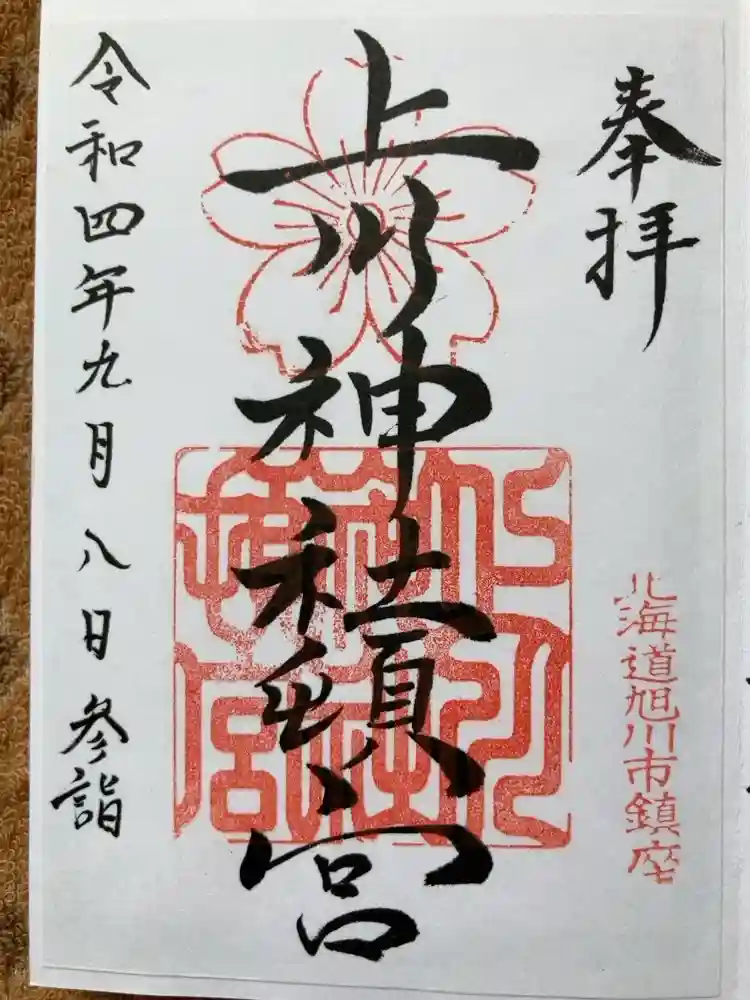 奉拝
北海道旭川市鎮座
上川神社頓宮
上川
神社
頓宮
令和四年九月八日参詣